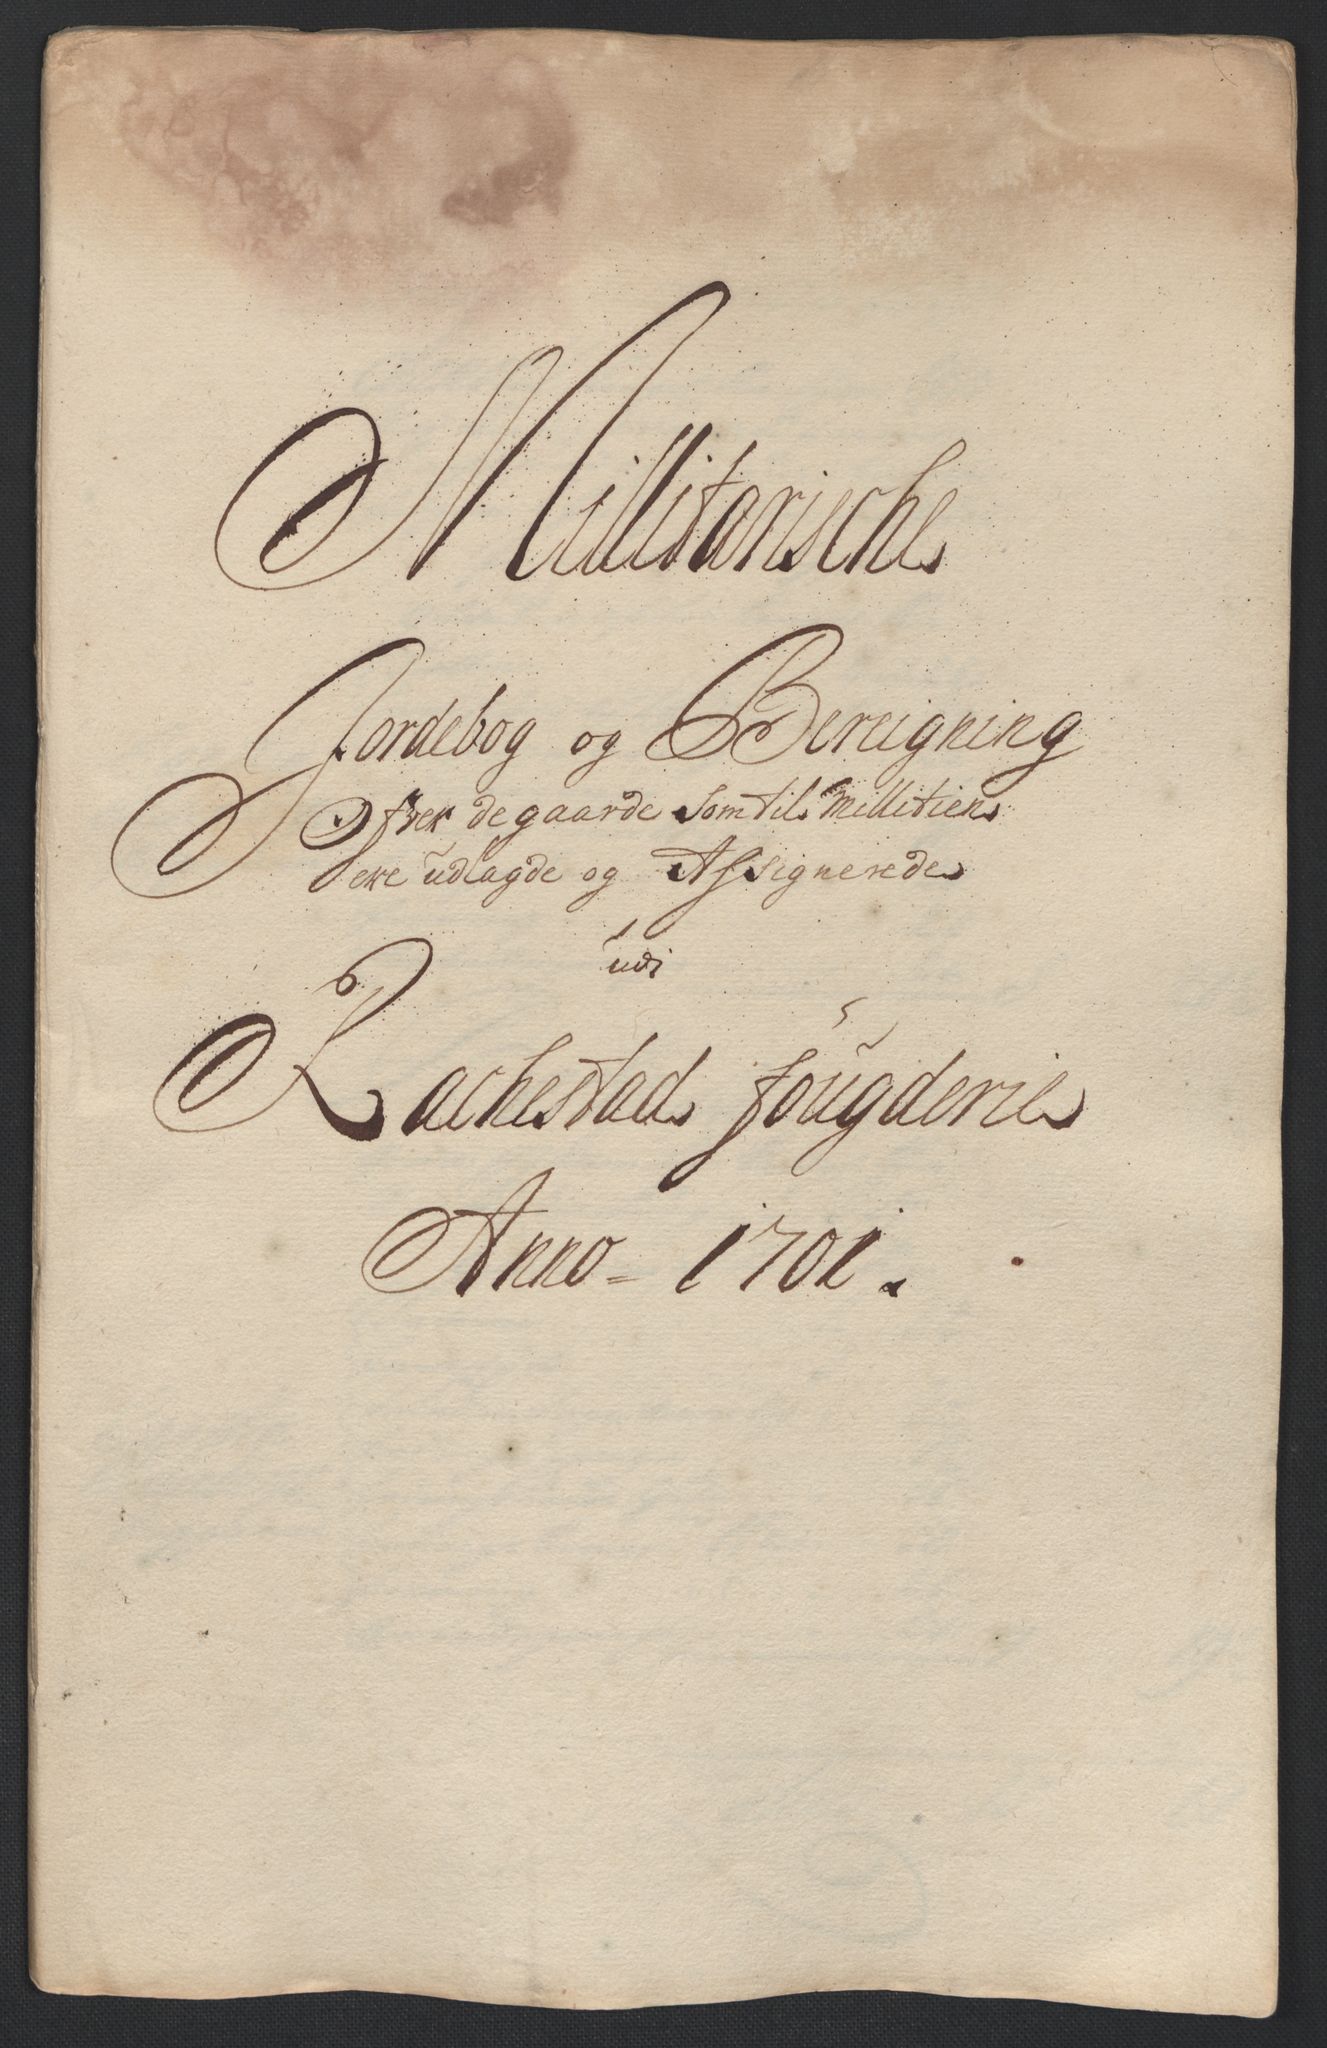 Millitarische
Jordebog og Bereigning
Ofver de gaarde som til Millitien
ere udlagde og Assignerede
udi
Rachestad fougderie
Anno - 1701.